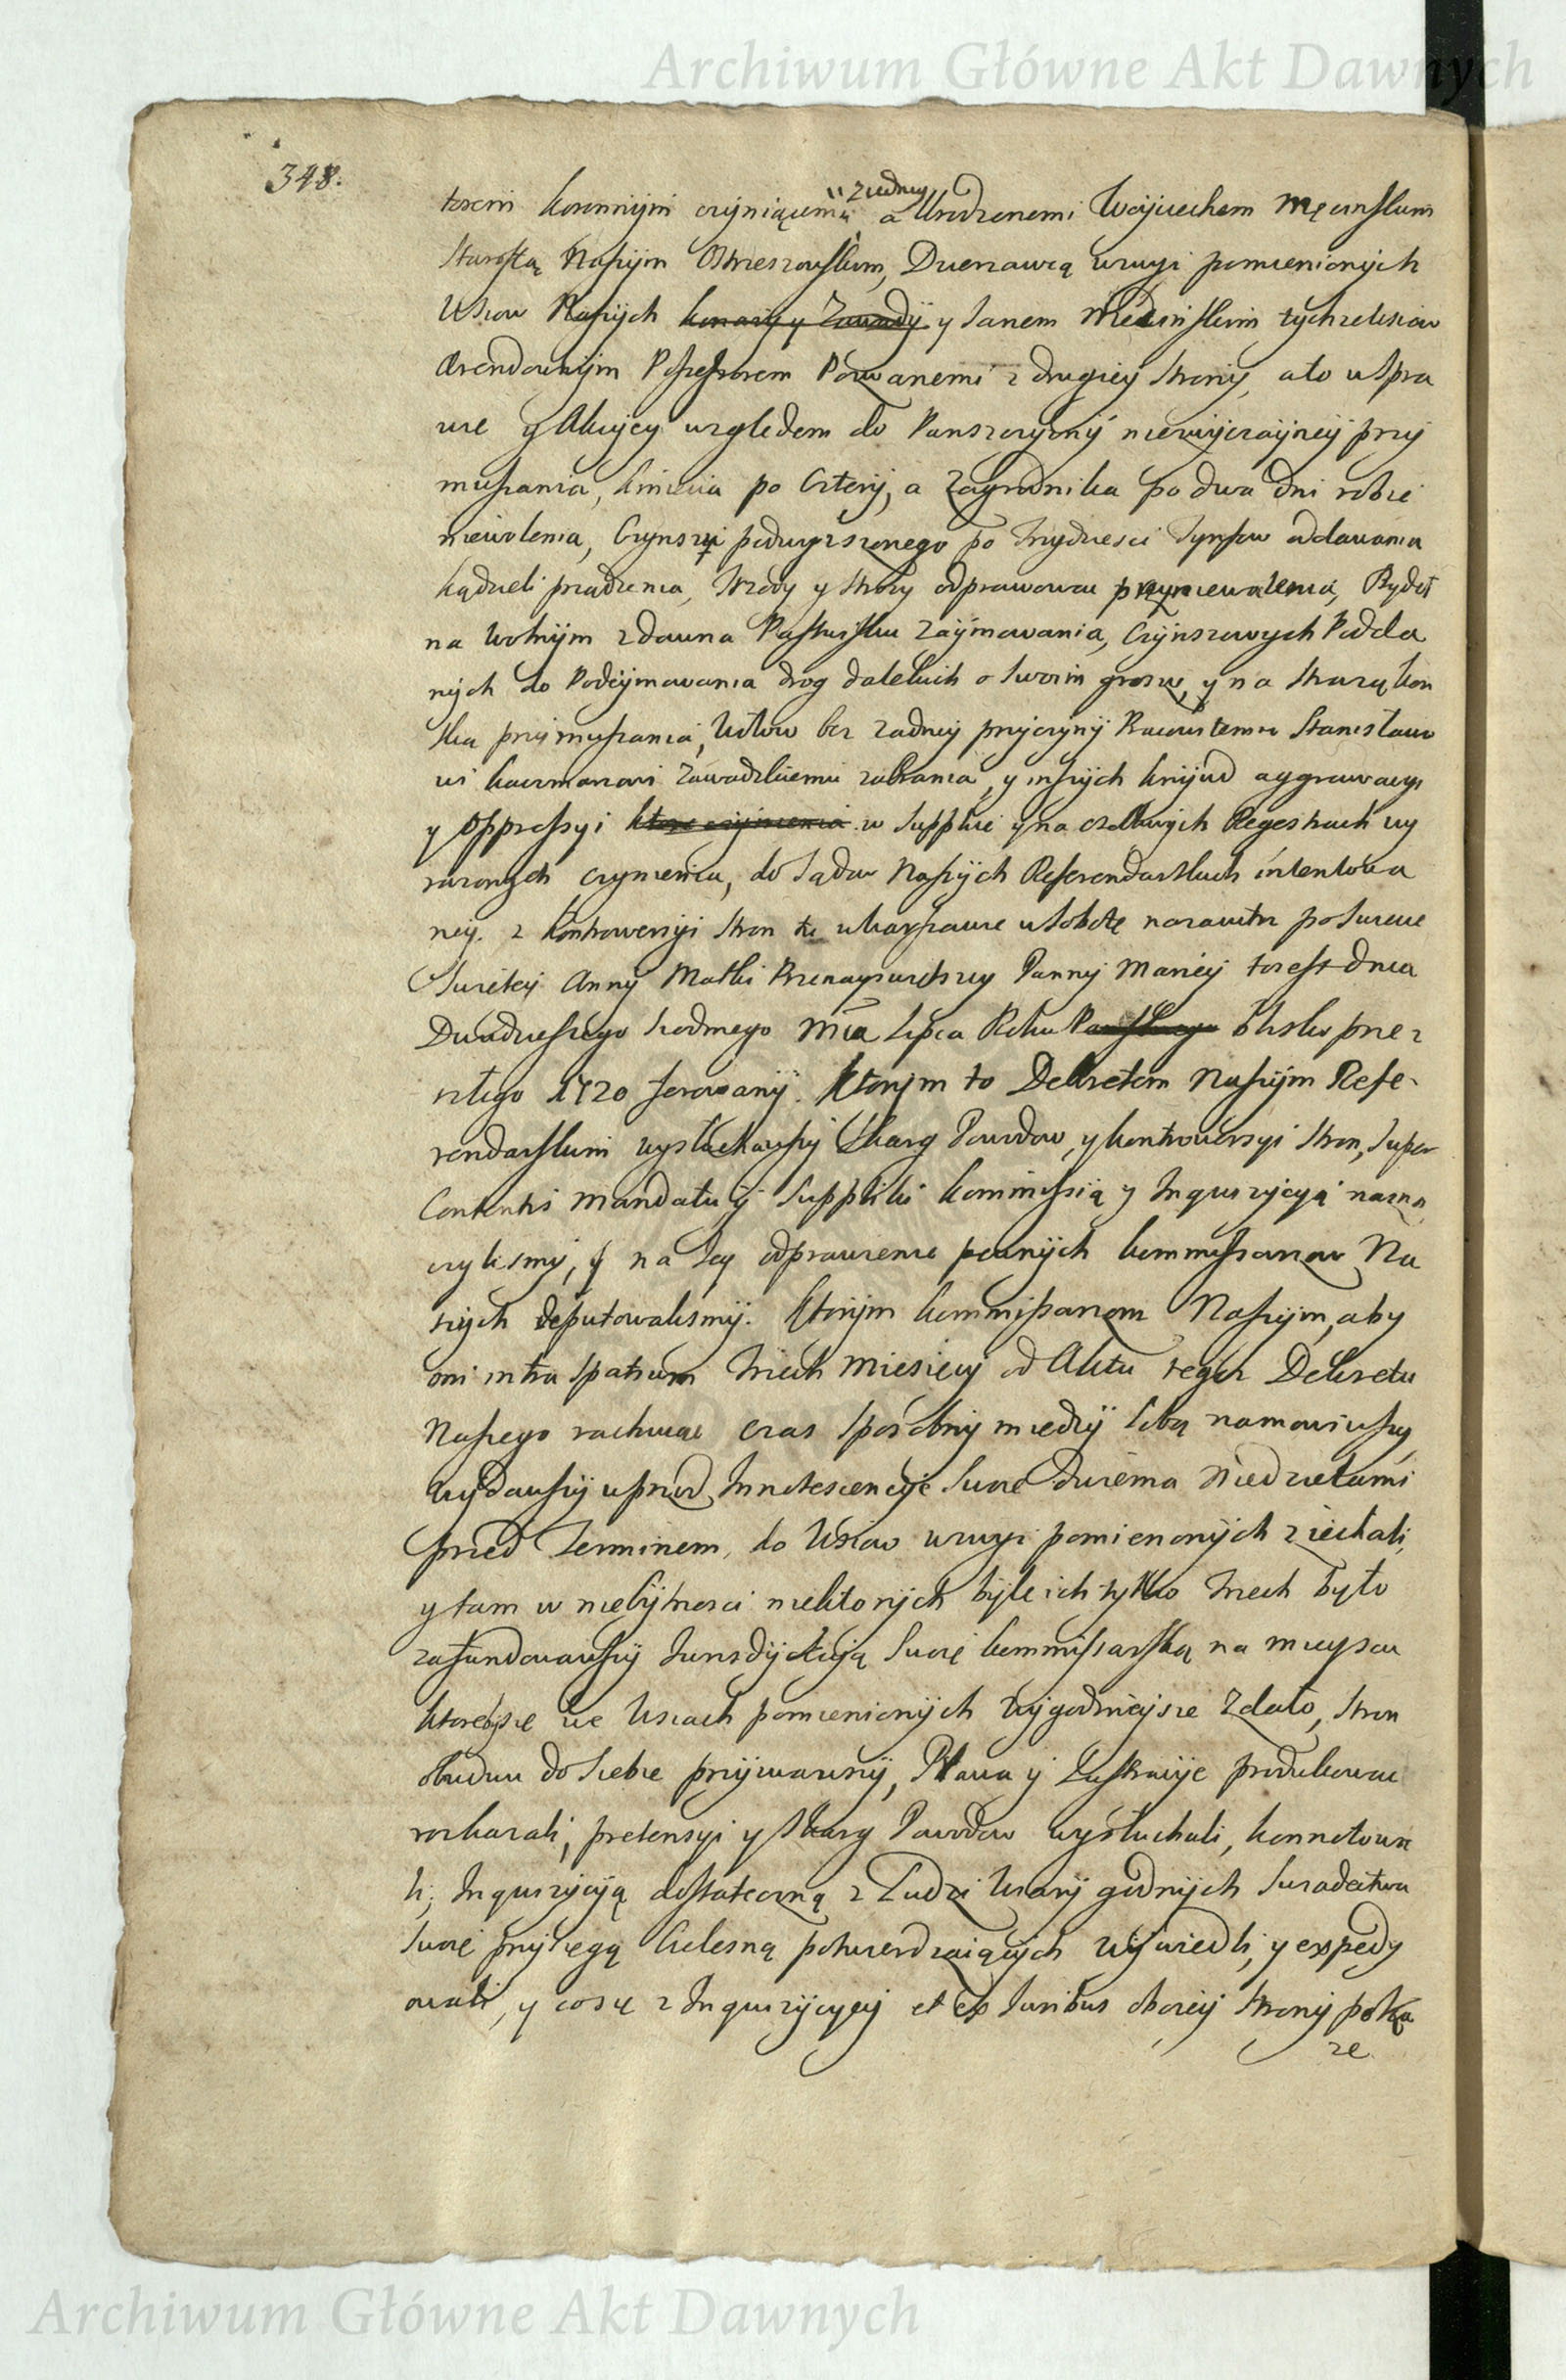 Archiwum Główne Akt Dawnych
348.
torem koronnym czyniącemi z iedney a Urodzonemi Woyciechem Męcinskim
Starostą Naszym Ostrzeszowskim, Dzierzawcą wzwyż pomienionych
Wsiow Naszych konary y Zawady y Janem Medinskim tychze wsiow
Arendownym Possessorem Pozwanemi z drugiey strony, a to w spra
wie y Akcyey względem do Panszczyzny niezwyczayney przy
muszania, kmiecia po Cztery, a zagrodnika po dwa dni robic
niewolenia, Czynszu podwyzszonego po trzydziesci Tynfow oddawania
kądzieli prządzenia, strozy odprawowac przyniewalenia, Bydeł
na wolnym zdawna Pastwisku zaymowania, Czynszowych Podda
nych do Podeymowania drog dalekich o swoim groszu, y na straz kon
ską przymuszania, Wołow bez zadney przyczyny Stanisławo
wi kaczmarowi Zawadzkiemu zabrania, y inszych krzywd aggrawacyi
y Oppressyi ktore czynienia w Supplice y na osobnych Regestrach wy
razonych czynienia, do Sądow Naszych Referendarskich intentowa
ney. z kontrowersyi stron w Warszawie w Sobotę nazaiutrz po Swięcie
Swiętey Anny Matki Przenayswiętszey Panny Maryey to iest dnia
Dwudziestego siodmego Mca Lipca Roku Panskiego blisko prze
szłego 1720 ferowany. Ktorym to Dekretem Naszym Refe-
rendarskim wysłuchawszy skarg Powodow, y kontrowersyi stron, super
Contentis Mandatu y Suppliki kommissią y Inquizycyą nazna
czylismy, y na Jey odprawienie pewnych kommissarzow Na
szych deputowalismy. Ktorym kommissarzom Naszym, aby
oni intra spatium trzech Miesięcy od Aktu tegoz Dekretu
Naszego rachuiąc czas sposobny między sobą namowiwszy
wydawszy wprzod Innotescencye swoie dwiema Niedzielami
przed Terminem, do Wsiow wzwyż pomienionych ziechali,
y tam w niebytnosci niektorych byle ich tylko trzech było
zafundowawszy Jurisdykcyą swoię kommissarską na mieyscu
ktoreby się we Wsiach pomienionych wygodnieysze zdało, stron
obudwu do siebie przyzwawszy, Prawa y Lustracye produkowac
rozkazali, pretensyi y skarg Powodow wysłuchali, konnotowa
li, Inquizycyą dostateczną z Ludzi Wiary godnych swiadectwa
swoie przysięgą Cielesną potwierdzaiących wywiedli, y expedy
owali, y co się z Inquizycyey et ex Juribus oboiey strony poka
ze
Archiwum Główne Akt Dawnych